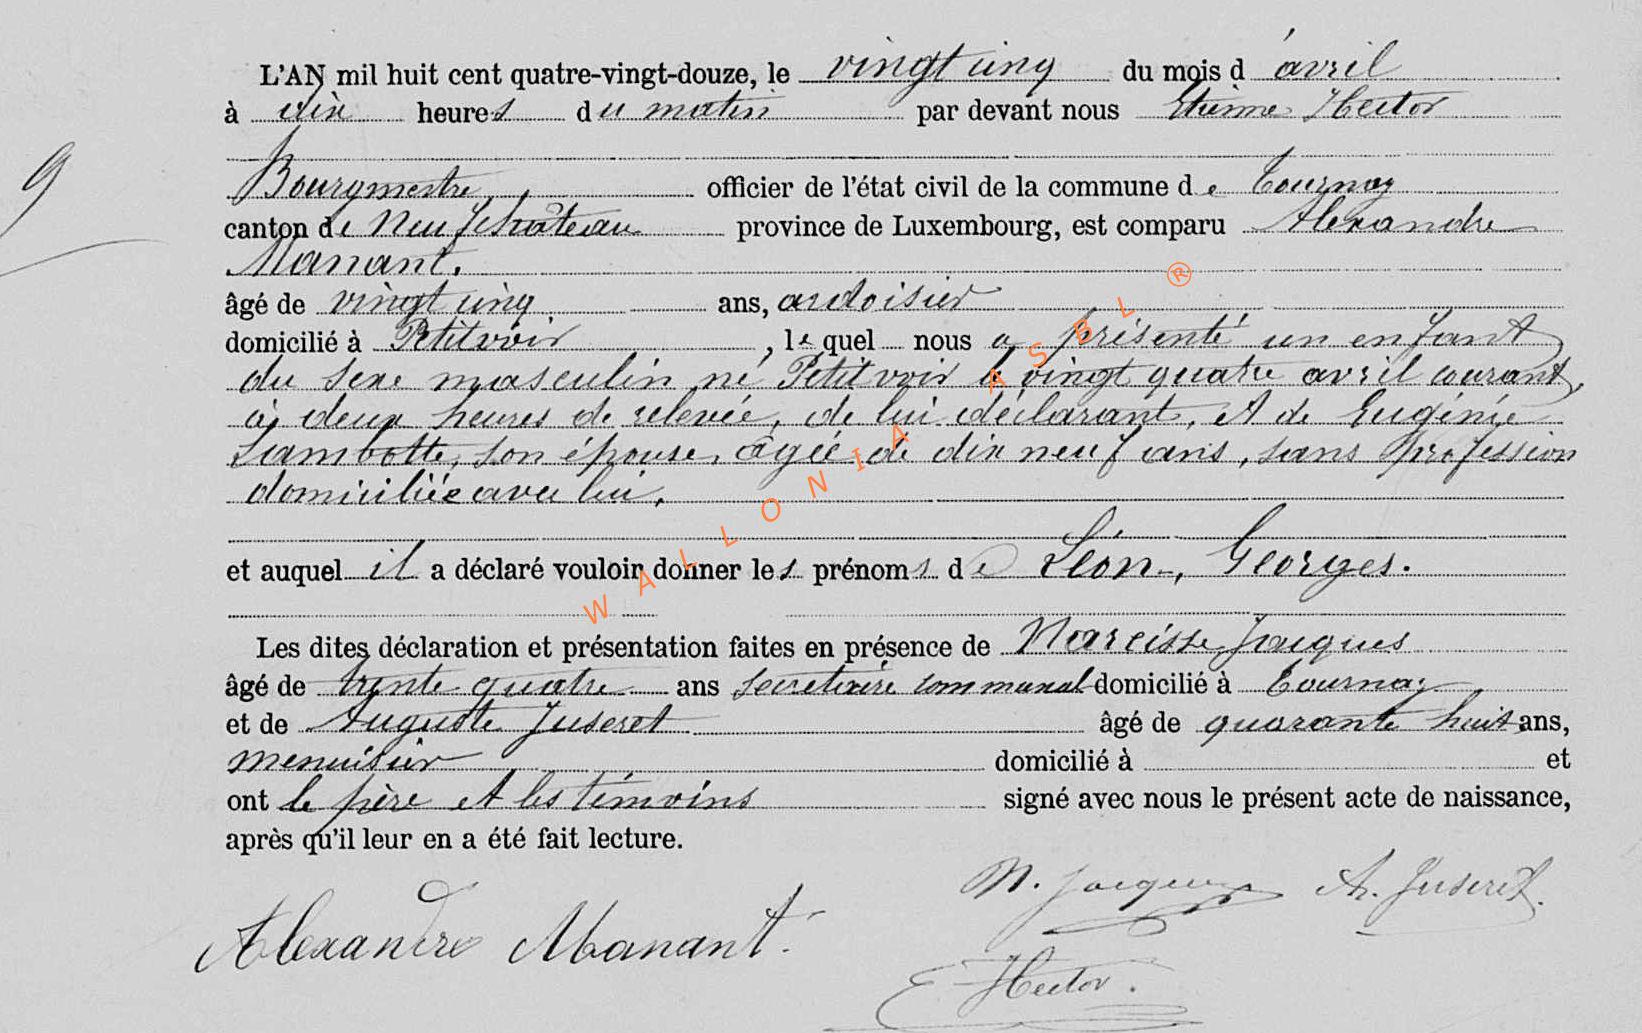 L'AN mil huit cent quatre-vingt-douze, le vingt cinq du mois d'avril
à dix heures du matin par devant nous Etienne Hector
Bourgmestre, officier de l'état civil de la commune de Tournay
canton de Neufchâteau province de Luxembourg, est comparu Alexandre
Manant.
âgé de vingt cinq ans, ardoisier
domicilié à Petitvoir, lequel nous a présenté un enfant
du sexe masculin né Petitvoir le vingt quatre avril courant,
à deux heures de relevée, de lui déclarant, et de Eugénie
Lambotte, son épouse, âgée de dix neuf ans, sans profession
domiciliée avec lui.
et auquel il a déclaré vouloir donner les prénoms de Léon, Georges.
Les dites déclaration et présentation faites en présence de Narcisse Jacques
âgé de trente quatre ans secrétaire communal domicilié à Tournay
et de Auguste Juseret âgé de quarante huit ans,
menuisier domicilié à et
ont le père et les témoins signé avec nous le présent acte de naissance,
après qu'il leur en a été fait lecture.
N. Jacques A. Juseret.
Alexandre Manant.
E. Hector.
9
WALLONIA ASBL ®